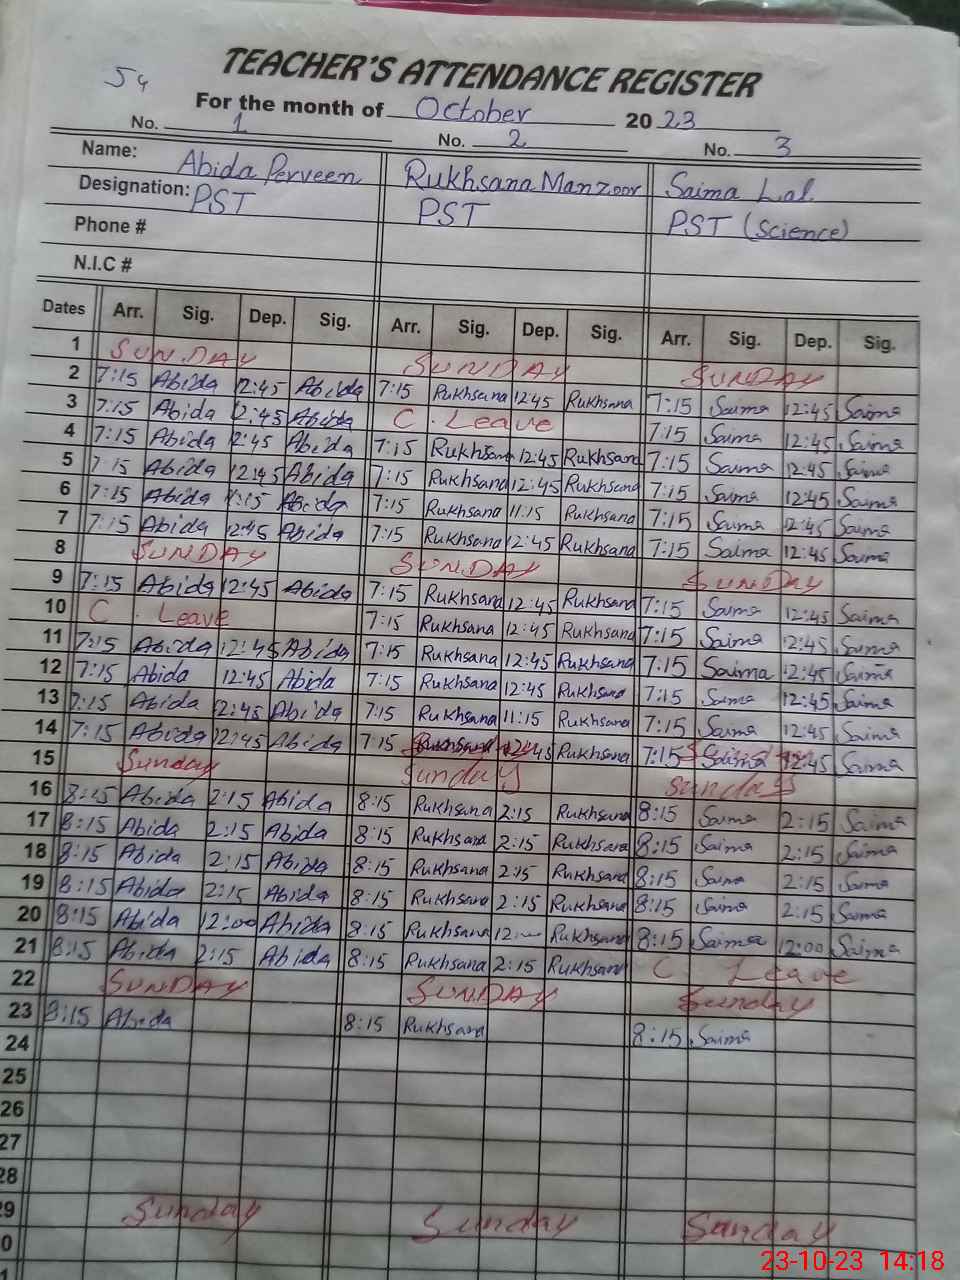 54
TEACHER'S ATTENDANCE REGISTER
For the month of October 2023
No. 1 No. 2 No. 3
Name: Abida Perveen Rukhsana Manzoor Saima Lal
Designation: PST PST PST (Science)
Phone #
N.I.C #
Dates Arr. Sig. Dep. Sig. Arr. Sig. Dep. Sig. Arr. Sig. Dep. Sig.
1 SUNDAY SUNDAY SUNDAY
2 7:15 Abida 12:45 Abida 7:15 Rukhsana 12:45 Rukhsana 7:15 Saima 12:45 Saima
3 7:15 Abida 12:45 Abida C. Leave 7:15 Saima 12:45 Saima
4 7:15 Abida 12:45 Abida 7:15 Rukhsana 12:45 Rukhsana 7:15 Saima 12:45 Saima
5 7:15 Abida 12:45 Abida 7:15 Rukhsana 12:45 Rukhsana 7:15 Saima 12:45 Saima
6 7:15 Abida 11:15 Abida 7:15 Rukhsana 11:15 Rukhsana 7:15 Saima 12:45 Saima
7 7:15 Abida 12:45 Abida 7:15 Rukhsana 12:45 Rukhsana 7:15 Saima 12:45 Saima
8 SUNDAY SUNDAY SUNDAY
9 7:15 Abida 12:45 Abida 7:15 Rukhsana 12:45 Rukhsana 7:15 Saima 12:45 Saima
10 C. Leave 7:15 Rukhsana 12:45 Rukhsana 7:15 Saima 12:45 Saima
11 7:15 Abida 12:45 Abida 7:15 Rukhsana 12:45 Rukhsana 7:15 Saima 12:45 Saima
12 7:15 Abida 12:45 Abida 7:15 Rukhsana 12:45 Rukhsana 7:15 Saima 12:45 Saima
13 7:15 Abida 12:45 Abida 7:15 Rukhsana 11:15 Rukhsana 7:15 Saima 12:45 Saima
14 7:15 Abida 12:45 Abida 7:15 Rukhsana 12:45 Rukhsana 7:15 Saima 12:45 Saima
15 Sunday Sunday Sunday
16 8:15 Abida 2:15 Abida 8:15 Rukhsana 2:15 Rukhsana 8:15 Saima 2:15 Saima
17 8:15 Abida 2:15 Abida 8:15 Rukhsana 2:15 Rukhsana 8:15 Saima 2:15 Saima
18 8:15 Abida 2:15 Abida 8:15 Rukhsana 2:15 Rukhsana 8:15 Saima 2:15 Saima
19 8:15 Abida 2:15 Abida 8:15 Rukhsana 2:15 Rukhsana 8:15 Saima 2:15 Saima
20 8:15 Abida 12:00 Abida 8:15 Rukhsana Rukhsana 8:15 Saima 12:00 Saima
21 8:15 Abida 2:15 Abida 8:15 Rukhsana 2:15 Rukhsana C Leave
22 SUNDAY SUNDAY Sunday
23 8:15 Abida 8:15 Rukhsana 8:15 Saima
24
25
26
27
28
29 Sunday Sunday Sunday
0
23-10-23 14:18